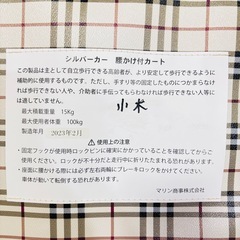 シルバーカー 腰かけ付カート
この製品は主として自立歩行できる高齢者が、より安定して歩行できるように
補助的に使用するものです。ただし、手すり等の固定したものにつかまらなければ
歩行できない人や、介助者に手伝ってもらわなければ歩行できない人等に
は適していません。
小木
最大積載重量 15Kg
最大使用者体重 100kg
製造年月 2023年2月
使用上の注意
・固定フックが使用時ロックピンに確実にかかっていることを確認してからご
使用ください。ロックが不十分だと走行中に折りたたまれることがあります。
・座面に腰かける際には必ず左右両輪にブレーキロックをかけてください。
車体が動いて転倒する恐れがあります。
マリン商事株式会社